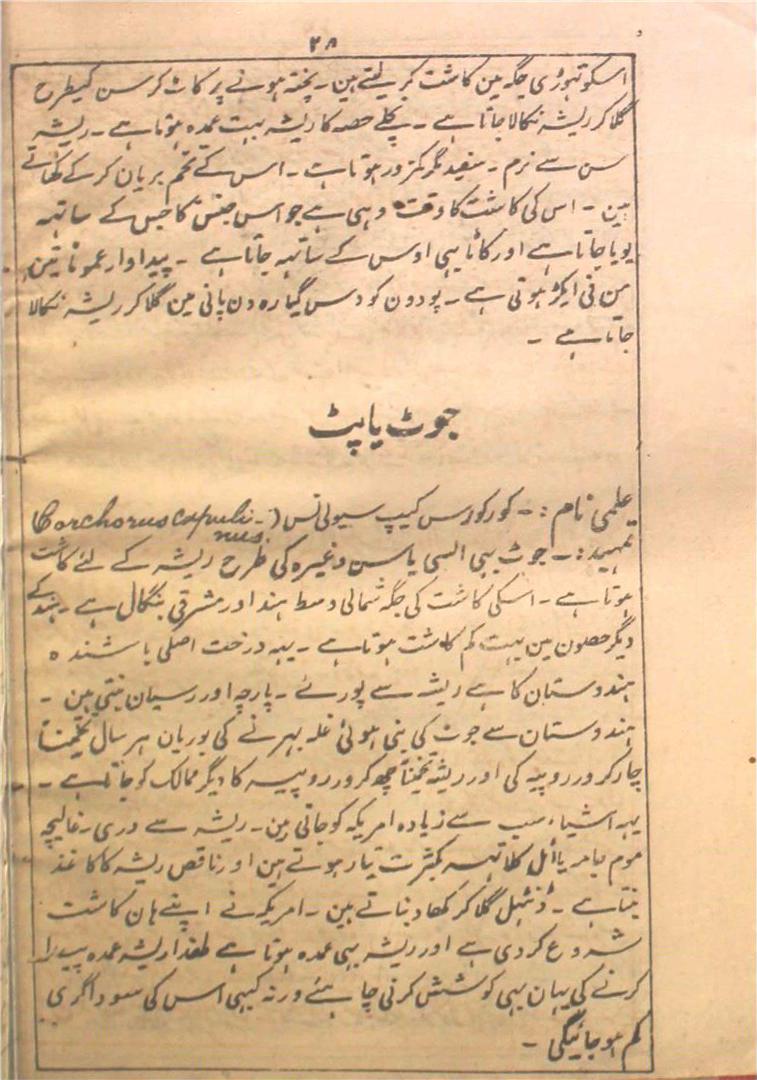 ۲۸
اسکو تہوڑی جگہ مین کاشت کر لیتے ہین ۔ پختہ ہونے پر کاٹ کر سن کیطرح
گلا کر ریشہ نکالا جاتا ہے ۔ نچلے حصہ کا ریشہ بہت عمدہ ہوتا ہے ۔ ریشہ
سن سے نرم ۔ سفید مگر کمزور ہوتا ہے ۔ اس کے تخم بریان کر کے کھاتے
ہین ۔ اس کی کاشت کا وقت وہی ہے جو اس جنس کا جس کے ساتہہ
بویا جاتا ہے اور کاٹا بہی اوس کے ساتہہ جاتا ہے ۔ پیداوار عموماً تین
من فی ایکڑ ہوتی ہے ۔ پودون کو دس گیارہ دن پانی مین گلا کر ریشہ نکالا
جاتا ہے ۔
جوٹ یا پٹ
علمی نام :۔ کورکورس کیپ سیولی نس (Corchorus capuli-
nus.
تمہید :۔ جوٹ بہی السی یا سن وغیرہ کی طرح ریشہ کے لئے کاشت
ہوتا ہے ۔ اسکی کاشت کی جگہ شمالی وسط ہند اور مشرقی بنگال ہے ۔ ہند کے
دیگر حصون مین بہت کم کاشت ہوتا ہے ۔ یہہ درخت اصلی باشندہ
ہندوستان کا ہے ریشہ سے بورئے ۔ پارچہ اور رسیان بنتی ہین ۔
ہندوستان سے جوٹ کی بنی ہوئی غلہ بہرنے کی بوریان ہر سال تخمیناً
چار کرور روپیہ کی اور ریشہ تخمیناً چھ کرور روپیہ کا دیگر ممالک کو جاتا ہے ۔
یہہ اشیاء سب سے زیادہ امریکہ کو جاتی ہین ۔ ریشہ سے دری ۔ غالیچہ
موم جامہ یا ائل کلاتہہ بکثرت تیار ہوتے ہین اور ناقص ریشہ کا کاغذ
بنتا ہے ۔ ڈنٹہل گلا کر کھاد بناتے ہین ۔ امریکہ نے اپنے ہان کاشت
شروع کر دی ہے اور ریشہ بہی عمدہ ہوتا ہے لہذا ریشہ عمدہ پیدا
کرنے کی یہان بہی کوشش کرنی چاہئے ورنہ کبہی اس کی سوداگری
کم ہو جائیگی ۔